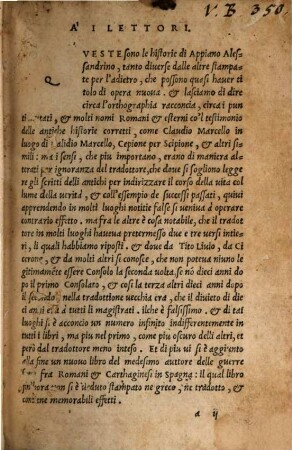 V. B 350.
A' I LETTORI.
QVESTE sono le historie di Appiano Ales
sandrino, tanto diuerse dalle altre stampa-
te per l'adietro, che possono quasi hauer ti
tolo di opera nuoua. & lasciamo di dire
circa l'orthographia racconcia, circa i pun
ti mutati, & molti nomi Romani & esterni co'l testimonio
delle antiche historie corretti, come Claudio Marcello in
luogo di Calidio Marcello, Cepione per Scipione, & altri si-
mili: ma i sensi, che piu importano, erano di maniera alte-
rati per ignoranza del tradottore, che doue si sogliono legge
re gli scritti delli antichi per indirizzare il corso della vita col
lume della verità, & coll'essempio de successi passati, quiui
apprendendo in molti luoghi notitie false si veniua à operare
contrario effetto, ma fra le altre è cosa notabile, che il tradot
tore in molti luoghi haueua pretermesso due e tre versi intie-
ri, li quali habbiamo riposti, & doue da Tito Liuio, da Ci
cerone, & da molti altri si conosce, che non poteua niuno le
gitimamẽte essere Consolo la seconda uolta, se nõ dieci anni do
po il primo Consolato, & cosi la terza altri dieci anni dopo
il secondo, nella tradottione uecchia era, che il diuieto di die
ci anni era à tutti li magistrati. ilche è falsissimo. & di tai
luoghi si è acconcio un numero infinito indifferentemente in
tutti i libri, ma piu nel primo, come piu oscuro delli altri, et
però dal tradottore meno inteso. Et di piu ui si è aggiunto
alla fine un nuouo libro del medesimo auttore delle guerre
fra Romani & Carthaginesi in Spagna: il qual libro
non è ueduto stampato ne greco, ne tradotto, &
contiene memorabili effetti.
a ij